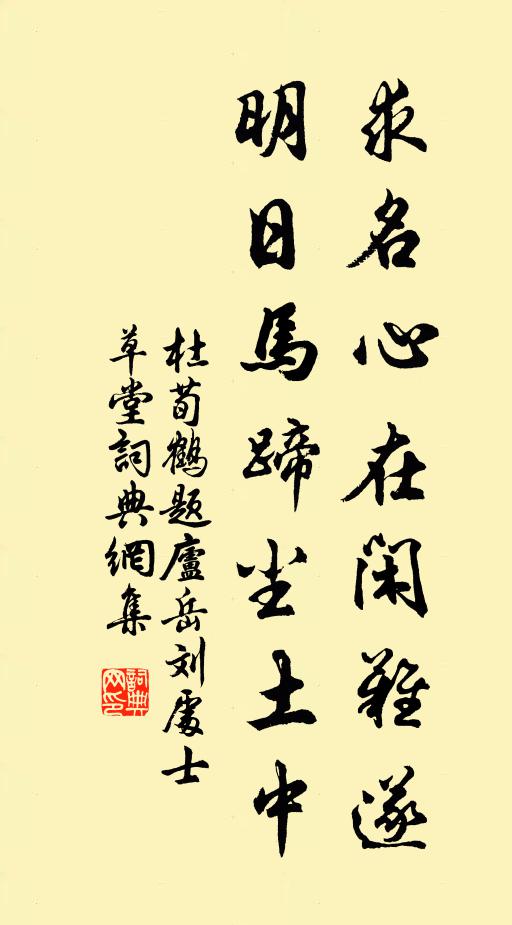 求名心在闲难遂
明日马蹄尘土中
杜荀鹤题庐岳刘处士
草堂詞典網集
詞典网印